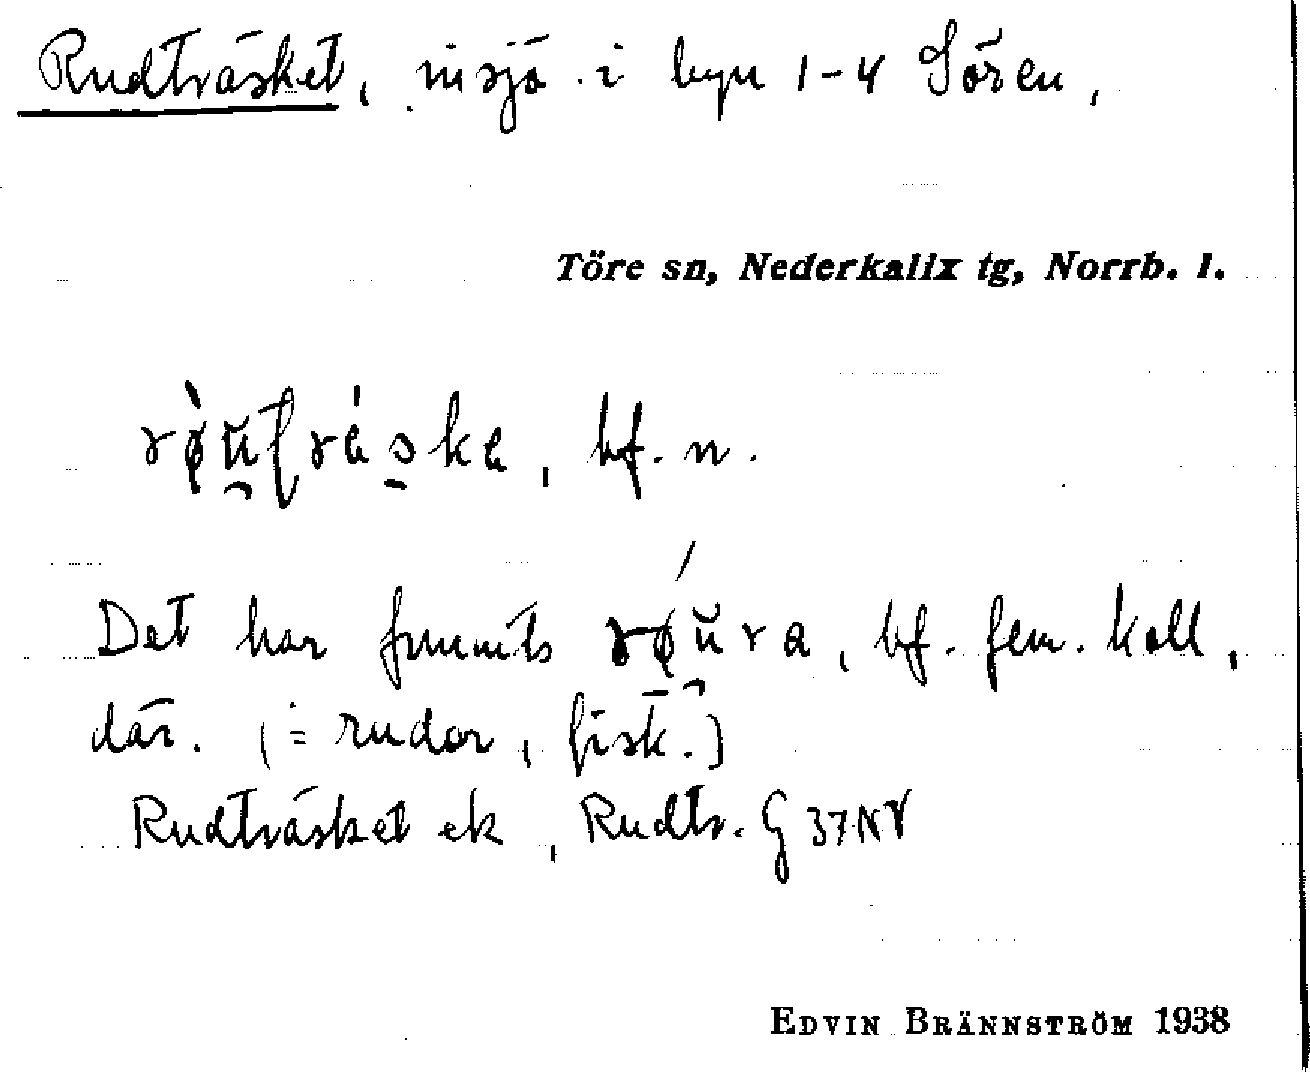 Rudträsket, insjö i byn 1-4 Sören,
Töre sn, Nederkalix tg, Norrb. l.
bf. n.
Det har funnits røŭra, bf. fem. koll,
där. (= rudor, fisk.)
Rudträsket ek, Rudtr. G 37 NV
EDVIN BRÄNNSTRÖM 1938